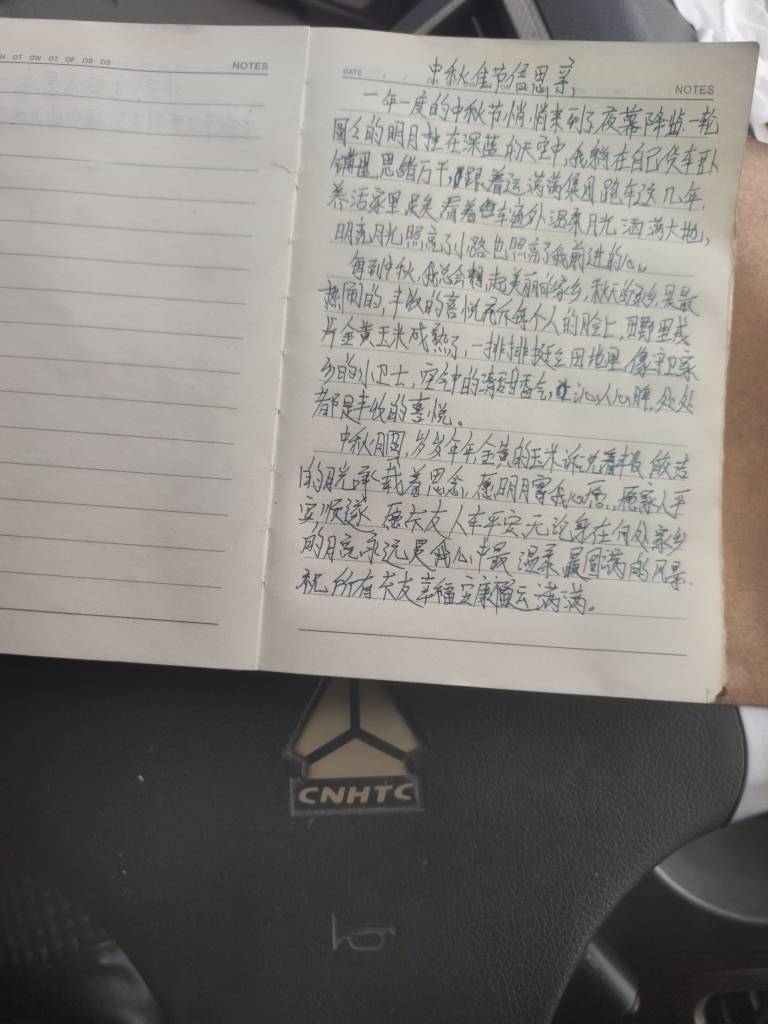 M OT OW OT OF OS OS
NOTES
DATE
NOTES
中秋佳节倍思亲,
一年一度的中秋节悄悄来到了夜幕降临.一轮
圆圆的明月挂在深蓝的天空中,我躺在自己货车卧
铺里,思绪万千,跟着运满满集团跑车这几年,
养活家里足矣 看着车窗外温柔月光洒满大地,
明亮月光照亮了小路也照亮了我前进的心。
每到中秋,我总会想起美丽的家乡,秋天的家乡,是最
热闹的,丰收的喜悦在每个人的脸上,田野里成
片金黄玉米成熟了,一排排挺立田地里像守卫家
乡的小卫士,空气中的清甜香气,沁人心脾,处处
都是丰收的喜悦。
中秋月圆,岁岁年年,金黄的玉米诉说着丰收 皎洁
的月光承载着思念,愿明月寄我心愿,愿家人平
安顺遂 愿卡友人车平安 无论身在何处家乡
的月亮永远是我心中最温柔最圆满的风景.
祝所有卡友幸福安康福运满满。
CNHTC